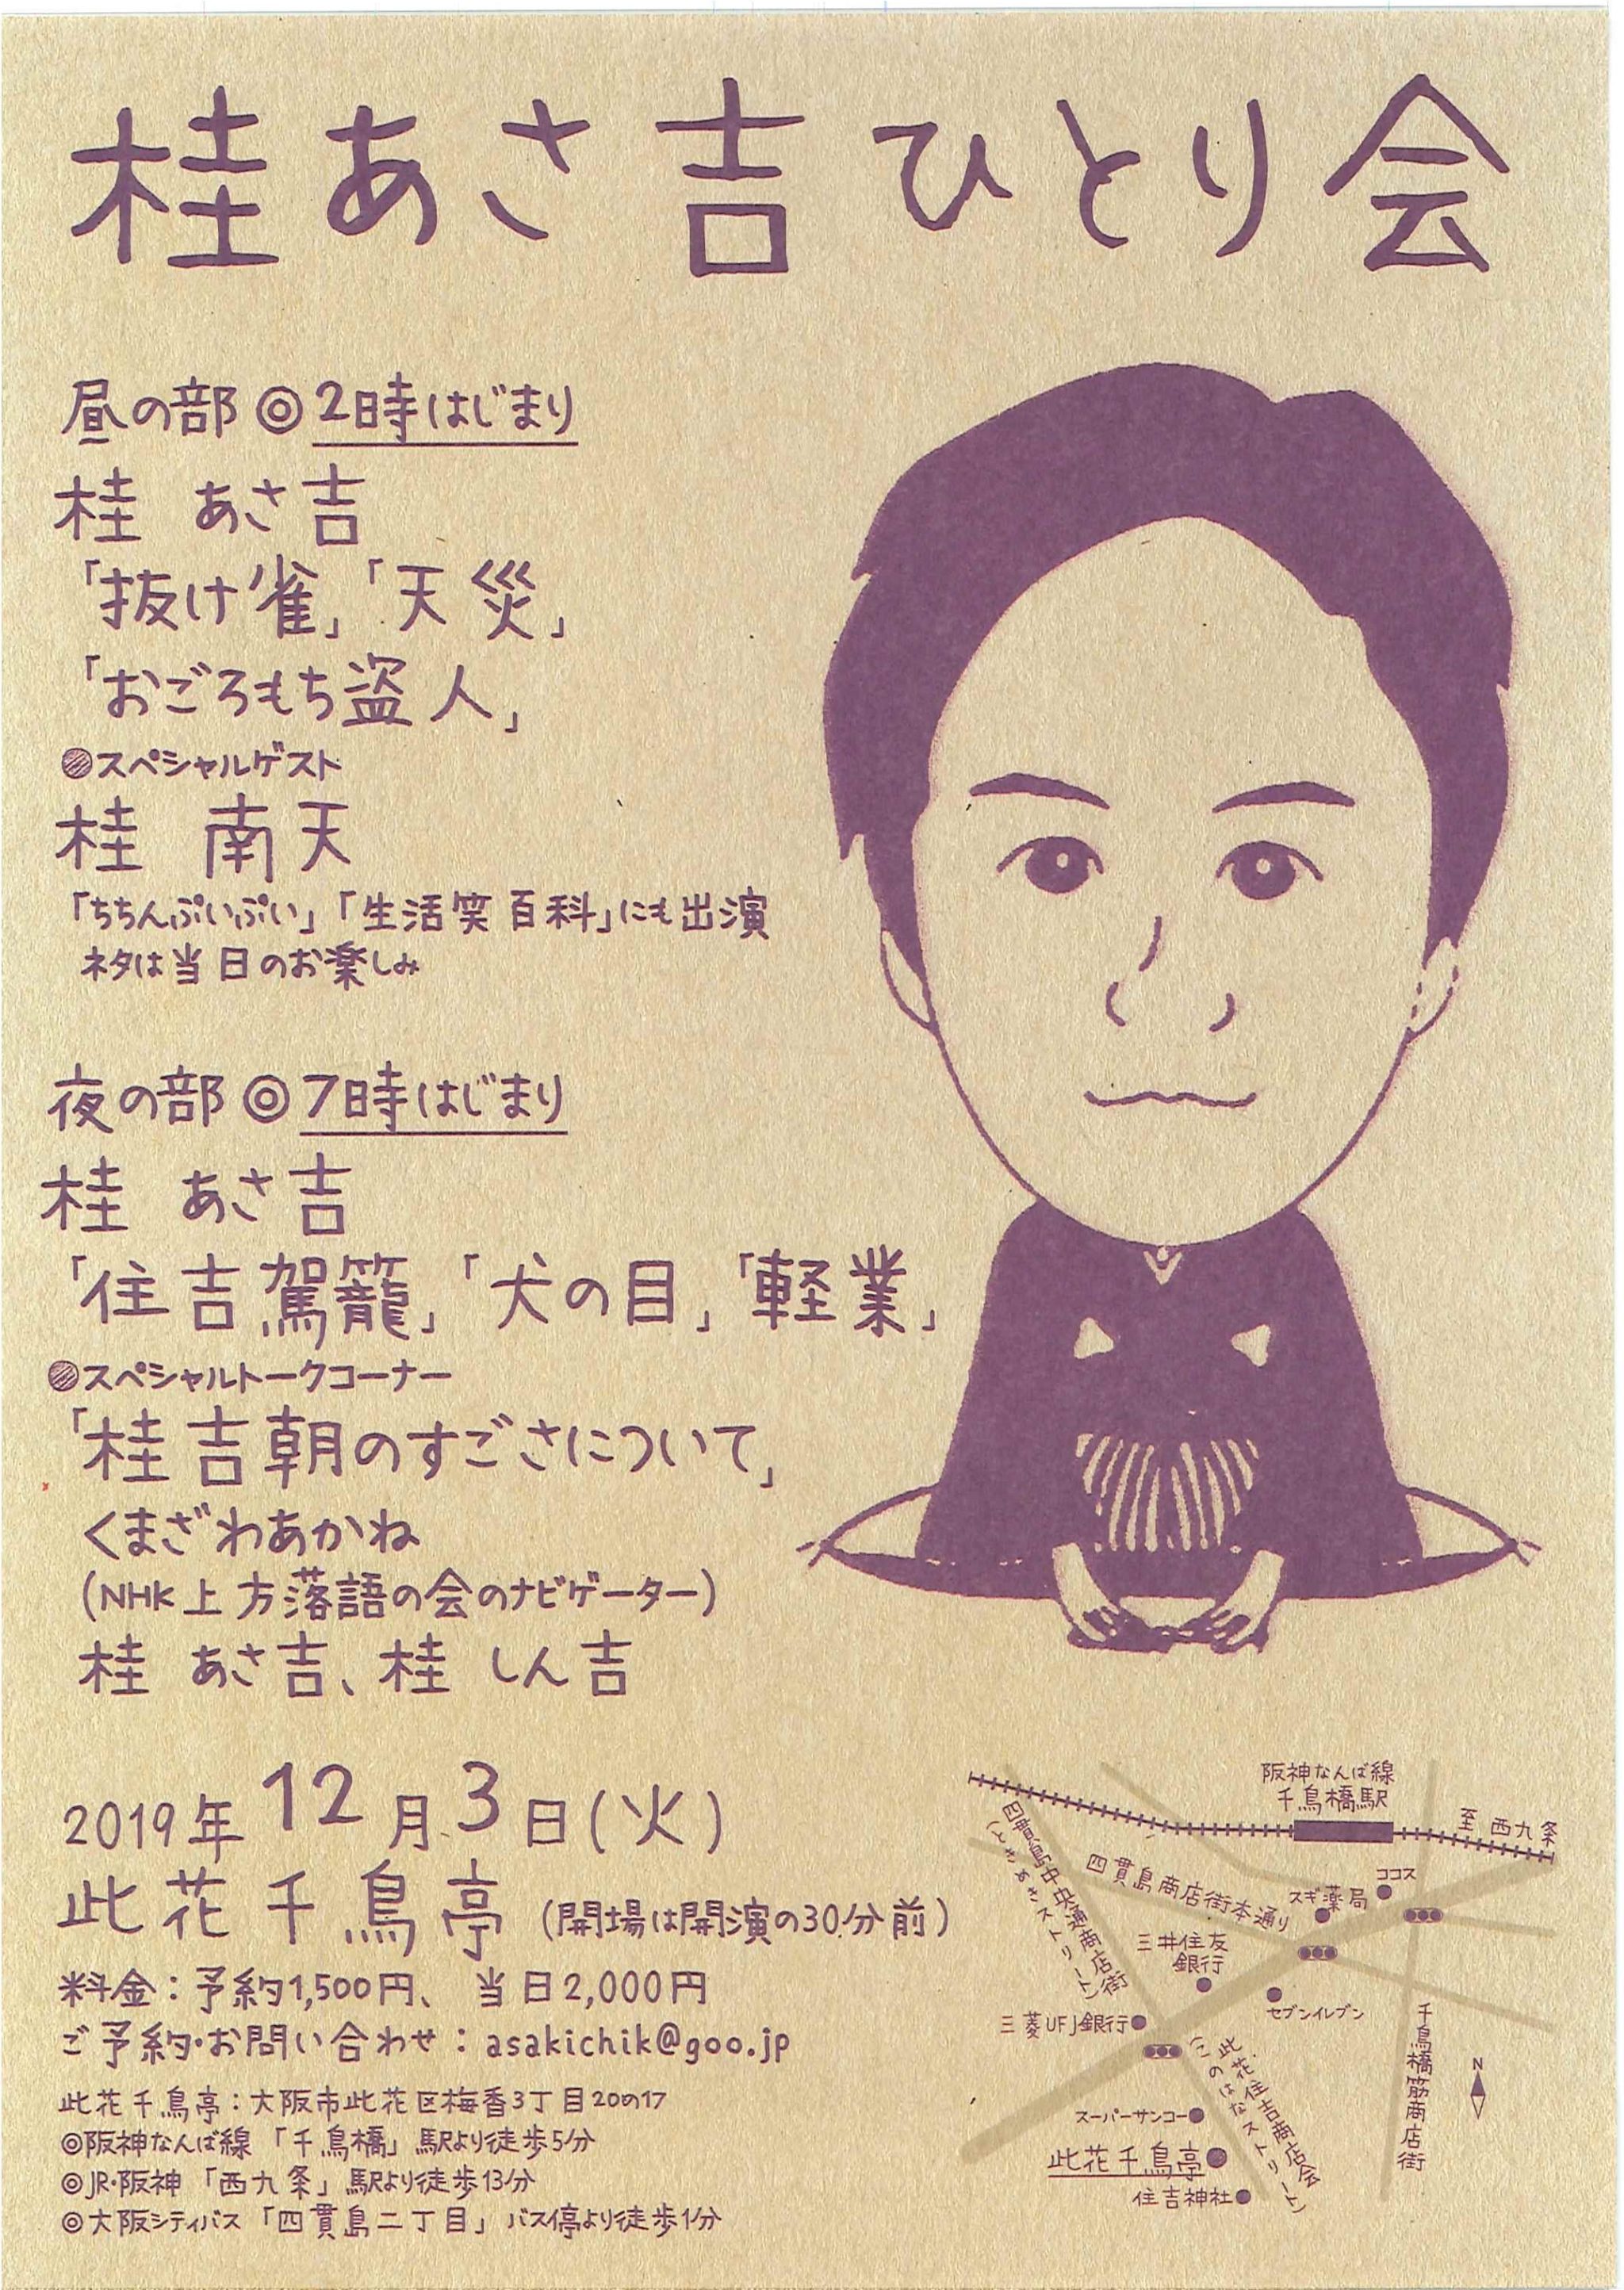 桂あさ吉ひとり会
昼の部◎2時はじまり
桂 あさ吉
「抜け雀」「天災」
「おごろもち盗人」
●スペシャルゲスト
桂 南天
「ちちんぷいぷい」「生活笑百科」にも出演
ネタは当日のお楽しみ
夜の部◎7時はじまり
桂 あさ吉
「住吉駕籠」「犬の目」「軽業」
●スペシャルトークコーナー
「桂吉朝のすごさについて」
くまざわあかね
(NHK上方落語の会のナビゲーター)
桂 あさ吉、桂 しん吉
2019年12月3日(火)
此花千鳥亭(開場は開演の30分前)
料金：予約1,500円、当日2,000円
ご予約・お問い合わせ：asakichik@goo.jp
此花千鳥亭：大阪市此花区梅香3丁目20の17
◎阪神なんば線「千鳥橋」駅より徒歩5分
◎JR・阪神「西九条」駅より徒歩13分
◎大阪シティバス「四貫島二丁目」バス停より徒歩1分
阪神なんば線
千鳥橋駅
至西九条
四貫島中央通商店街
(ときめきストリート)
四貫島商店街本通り
ココス
スギ薬局
三井住友
銀行
セブンイレブン
三菱UFJ銀行
千鳥橋筋商店街
此花住吉商店会
(このはなストリート)
N
スーパーサンコー
此花千鳥亭
住吉神社